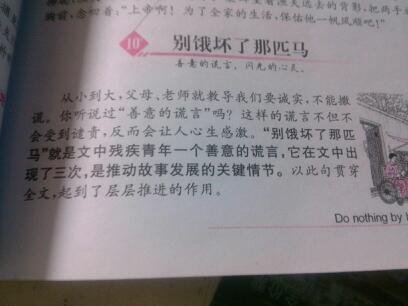 胸前，念叨着：“上帝啊！为了全家的生活，保佑他一帆风顺吧！”
10 别饿坏了那匹马
善意的谎言，闪光的心灵。
从小到大，父母、老师就教导我们要诚实，不能撒
谎。你听说过“善意的谎言”吗？这样的谎言不但不
会受到谴责，反而会让人心生感激。“别饿坏了那匹
马”就是文中残疾青年一个善意的谎言，它在文中出
现了三次，是推动故事发展的关键情节。以此句贯穿
全文，起到了层层推进的作用。
Do nothing by